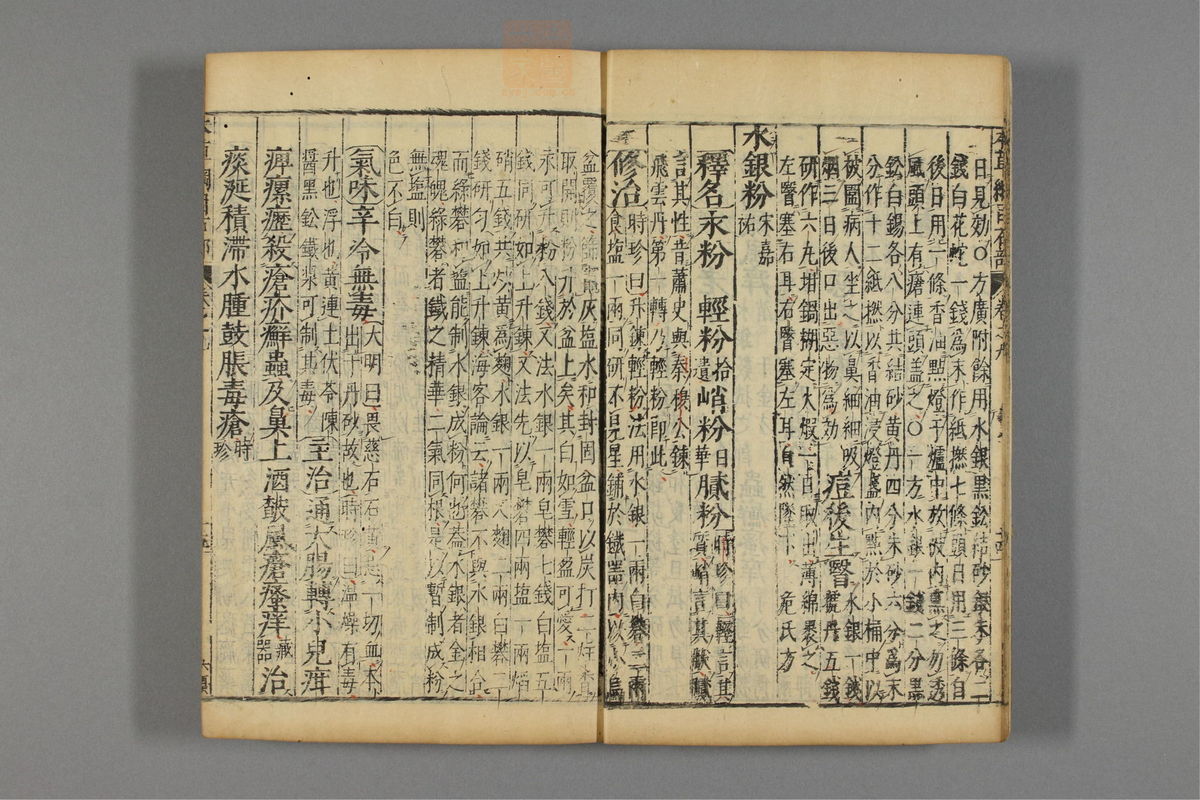 日見効○方廣附餘用水銀黑鉛結砂銀朱各二
錢白花蛇一錢爲末作紙撚七條頭日用三條自
後日用一條香油點燈于爐中放被內熏之勿透
風頭上有瘡連頭蓋之○一方水銀一錢二分黑
鉛白錫各八分共結砂黃丹四分朱砂六分爲末
分作十二紙撚以香油浸燈盞內點於小桶中以
被圍病人坐之以鼻細細吸烟三日後口出惡物爲効
痘後生瞖水銀一錢虢丹五錢
研作六丸坩鍋糊定火煅一日取出薄綿裹之
左瞖塞右耳右瞖塞左耳自然墜下危氏方
水銀粉宋嘉祐
釋名汞粉 輕粉拾遺 峭粉日華 膩粉時珍曰輕言其質峭言其狀膩
言其性昔蕭史與秦穆公鍊
飛雲丹第一轉乃輕粉即此
修治時珍曰升鍊輕粉法用水銀一兩白礬二兩
食塩一兩同研不見星鋪於鐵器內以小烏
盆覆之篩竈灰塩水和封固盆口以炭打二炷香
取開則粉升於盆上矣其白如雪輕盈可愛一兩
汞可升粉八錢又法水銀一兩皂礬七錢白塩五
錢同研如上升鍊又法先以皂礬四兩塩一兩焰
硝五錢共炒黃爲麴水銀一兩又麴二兩白礬二
錢研匀如上升鍊海客論云諸礬不與水銀相合
而綠礬和塩能制水銀成粉何也蓋水銀者金之
魂魄綠礬者鐵之精華二氣同根是以暫制成粉
無塩則
色不白
氣味辛冷無毒大明曰畏慈石石黃忌一切血本
出于丹砂故也時珍曰溫燥有毒
升也浮也黃連土伏苓陳
醬黑鉛鐵漿可制其毒
主治通大腸轉小兒疳
痺瘰癧殺瘡疥癬蟲及鼻上酒皶風瘡瘙痒藏器治
痰涎積滯水腫鼓脹毒瘡時珍